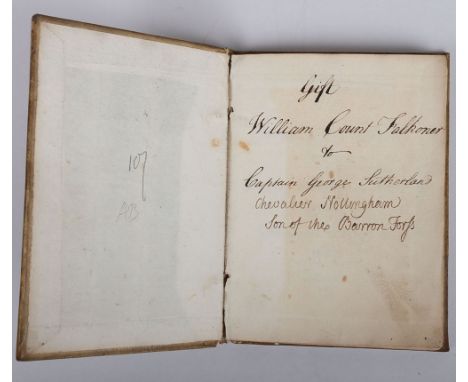 107
AB
Gift
William Count Falkoner
to
Captain George Sutherland
Chevalier Nottingham
Son of the Barron Forſs